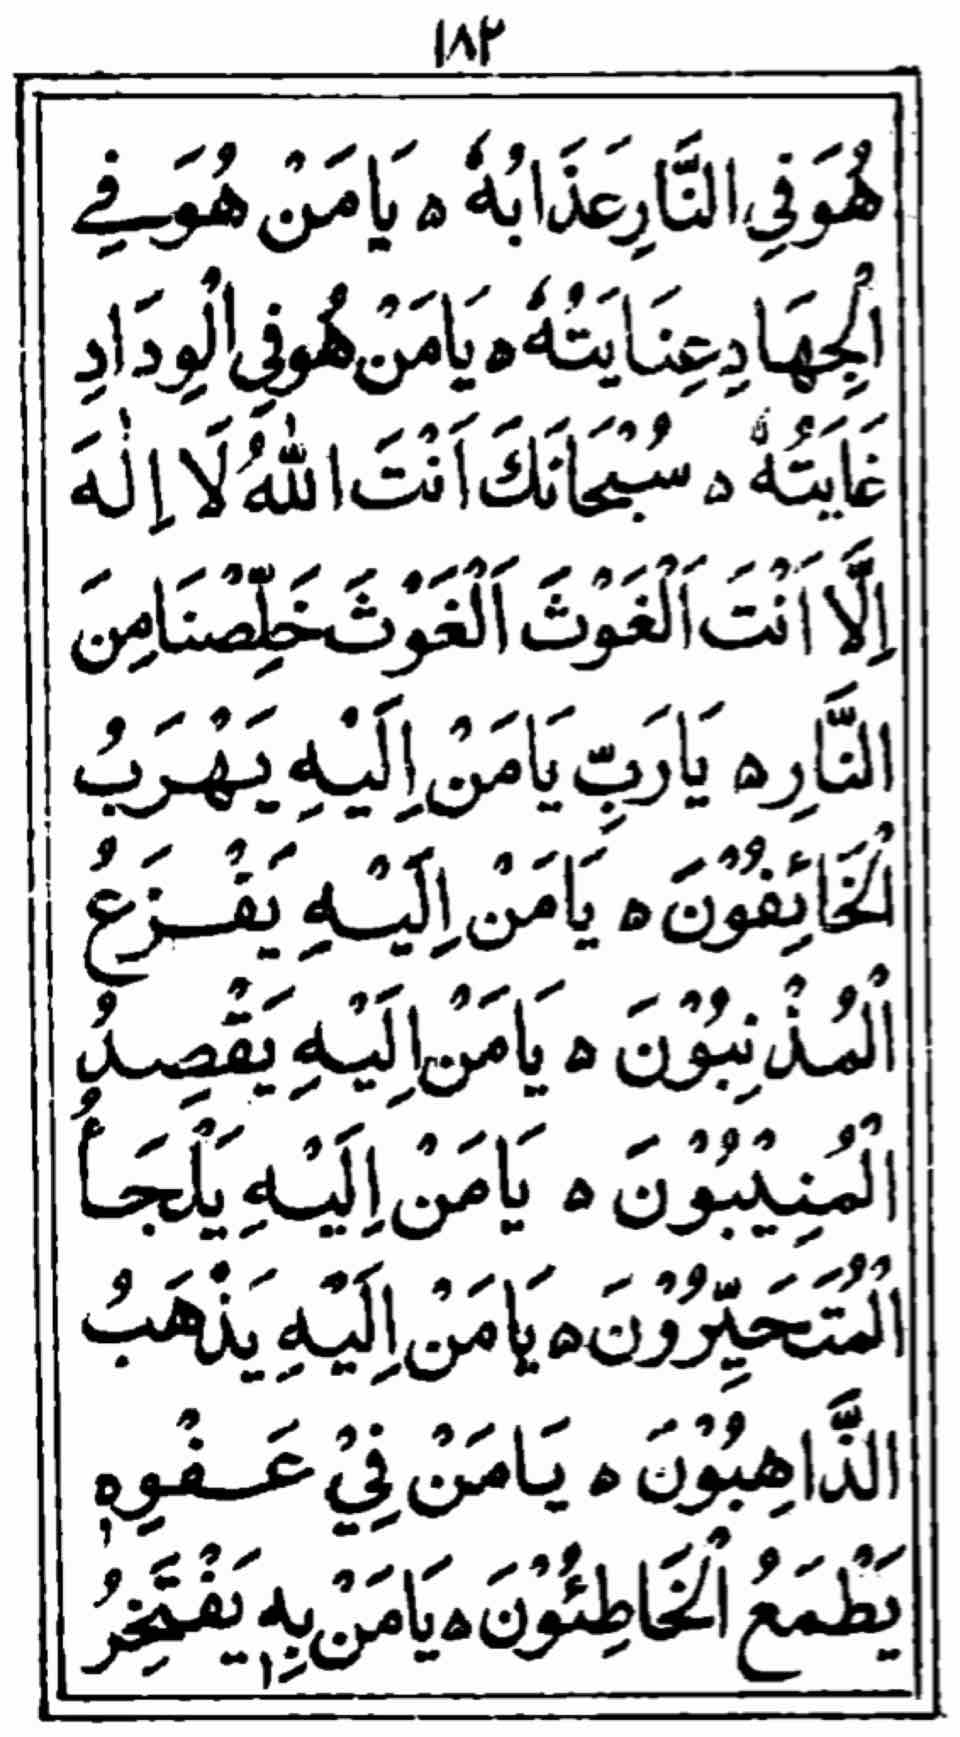 ١٨٢
هُوَ فِي النَّارِ عَذَابُهُ ه يَا مَنْ هُوَ فِي
الْجِهَادِ عِنَايَتُهُ ه يَا مَنْ هُوَ فِي الْوِدَادِ
غَايَتُهُ ه سُبْحَانَكَ اَنْتَ اللّٰهُ لَا اِلٰهَ
اِلَّا اَنْتَ اَلْغَوْثَ اَلْغَوْثَ خَلِّصْنَا مِنَ
النَّارِ ه يَا رَبِّ يَا مَنْ اِلَيْهِ يَهْرَبُ
الْخَائِفُوْنَ ه يَا مَنْ اِلَيْهِ يَفْزَعُ
الْمُذْنِبُوْنَ ه يَا مَنْ اِلَيْهِ يَقْصِدُ
الْمُنِيْبُوْنَ ه يَا مَنْ اِلَيْهِ يَلْجَأُ
الْمُتَحَيِّرُوْنَ ه يَا مَنْ اِلَيْهِ يَذْهَبُ
الذَّاهِبُوْنَ ه يَا مَنْ فِيْ عَفْوِهٖ
يَطْمَعُ الْخَاطِئُوْنَ ه يَا مَنْ بِهٖ يَفْتَخِرُ